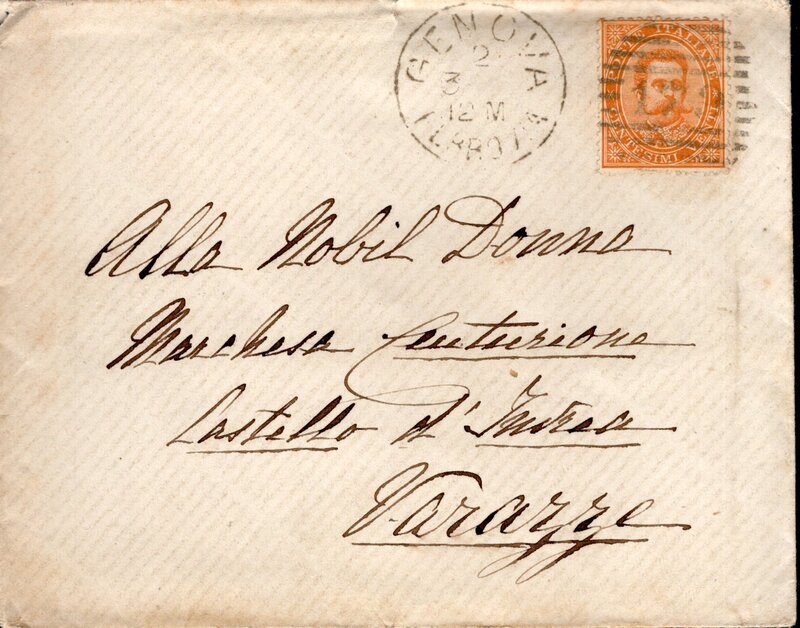 GENOVA
2
3
12 M
FERROVIA
POSTE ITALIANE
CENTESIMI
Alla Nobil Donna
Marchesa Centurione
Castello d'Invrea
Varazze